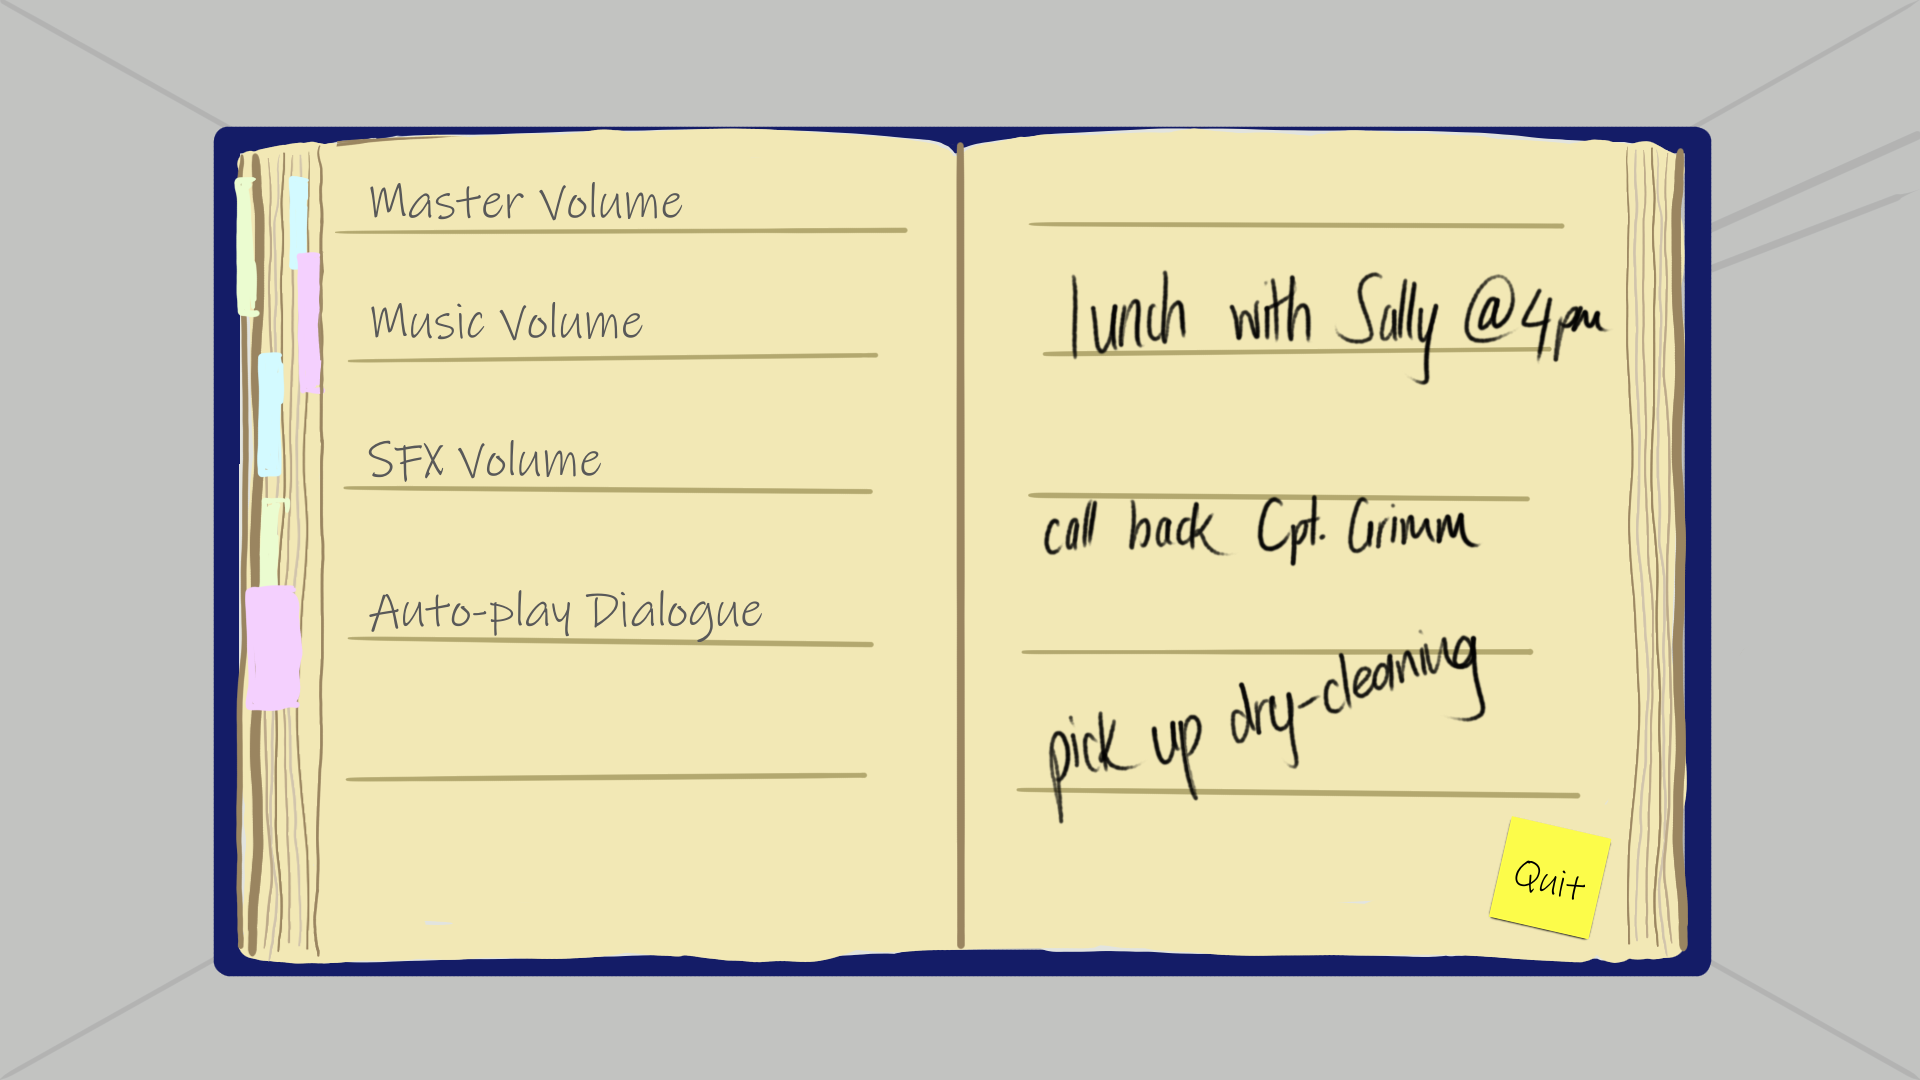 Master Volume
Music Volume
SFX Volume
Auto-play Dialogue
lunch with Sally @4pm
call back Cpt. Grimm
pick up dry-cleaning
Quit